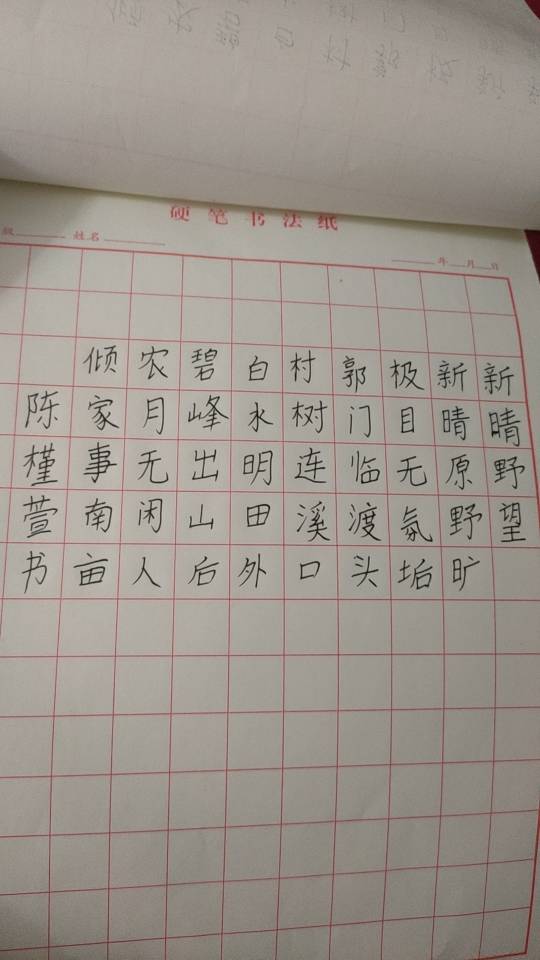 硬笔书法纸
级 姓名
年 月 日
新晴野望
新晴原野旷
极目无氛垢
郭门临渡头
村树连溪口
白水明田外
碧峰出山后
农月无闲人
倾家事南亩
陈槿萱书